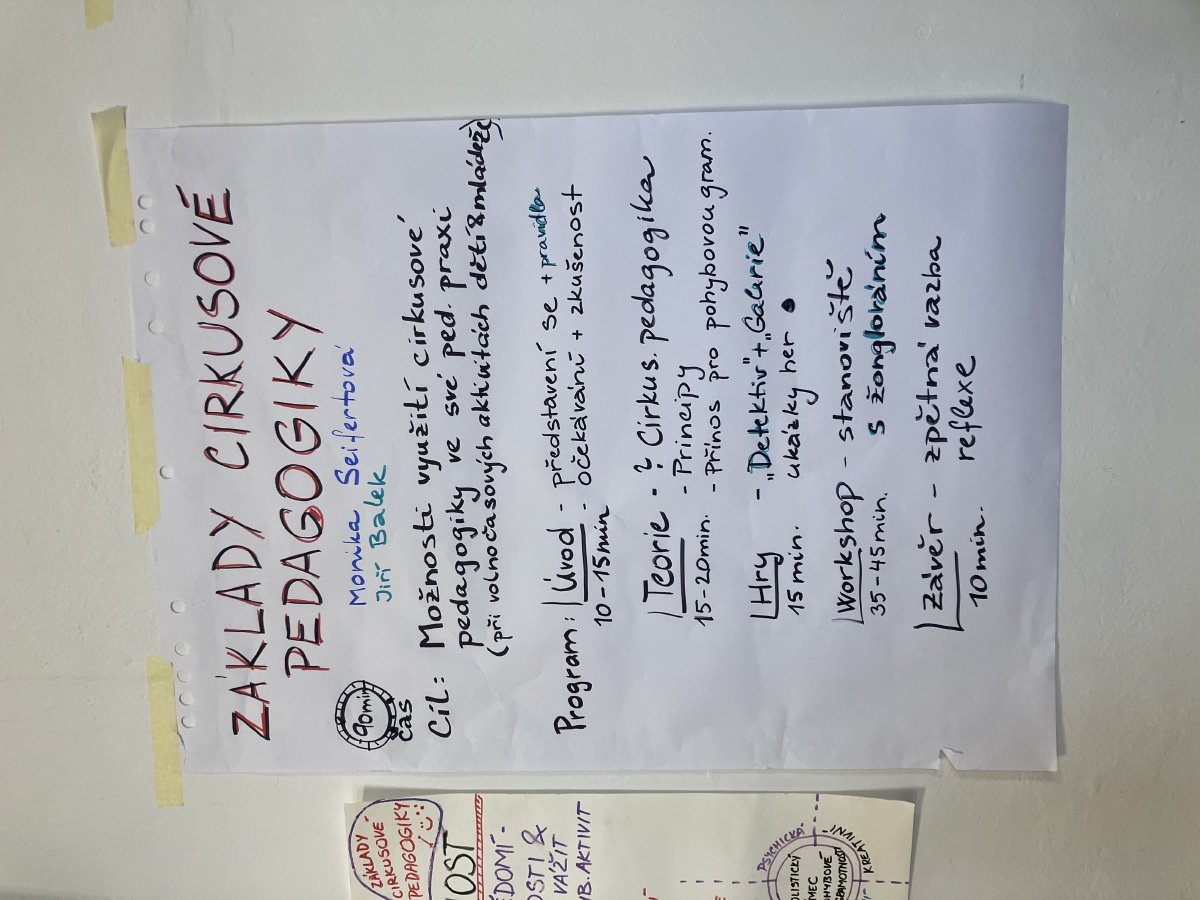 ZÁKLADY CIRKUSOVÉ
PEDAGOGIKY
Monika Seifertová
Jiří Balek
90min
čas
Cíl: Možnosti využití cirkusové
pedagogiky ve své ped. praxi
(při volnočasových aktivitách dětí & mládeže)
Program: Úvod - představení se + pravidla
- očekávání + zkušenost
10-15min
Teorie - ? Cirkus. pedagogika
- Principy
15-20min. - Přínos pro pohybovou gram.
Hry - "Detektiv" + "Galerie"
15 min. ukázky her
Workshop - stanoviště
35-45min. s žonglováním
Závěr - zpětná vazba
reflexe
10min.
ZÁKLADY
CIRKUSOVÉ
PEDAGOGIKY
OST
ĚDOMÍ-
OSTI &
VÁŽIT
B. AKTIVIT
PSYCHICKÁ
OLISTICKÝ
MEC
HYBOVÉ
GRAMOTNOSTI
KREATIVNÍ